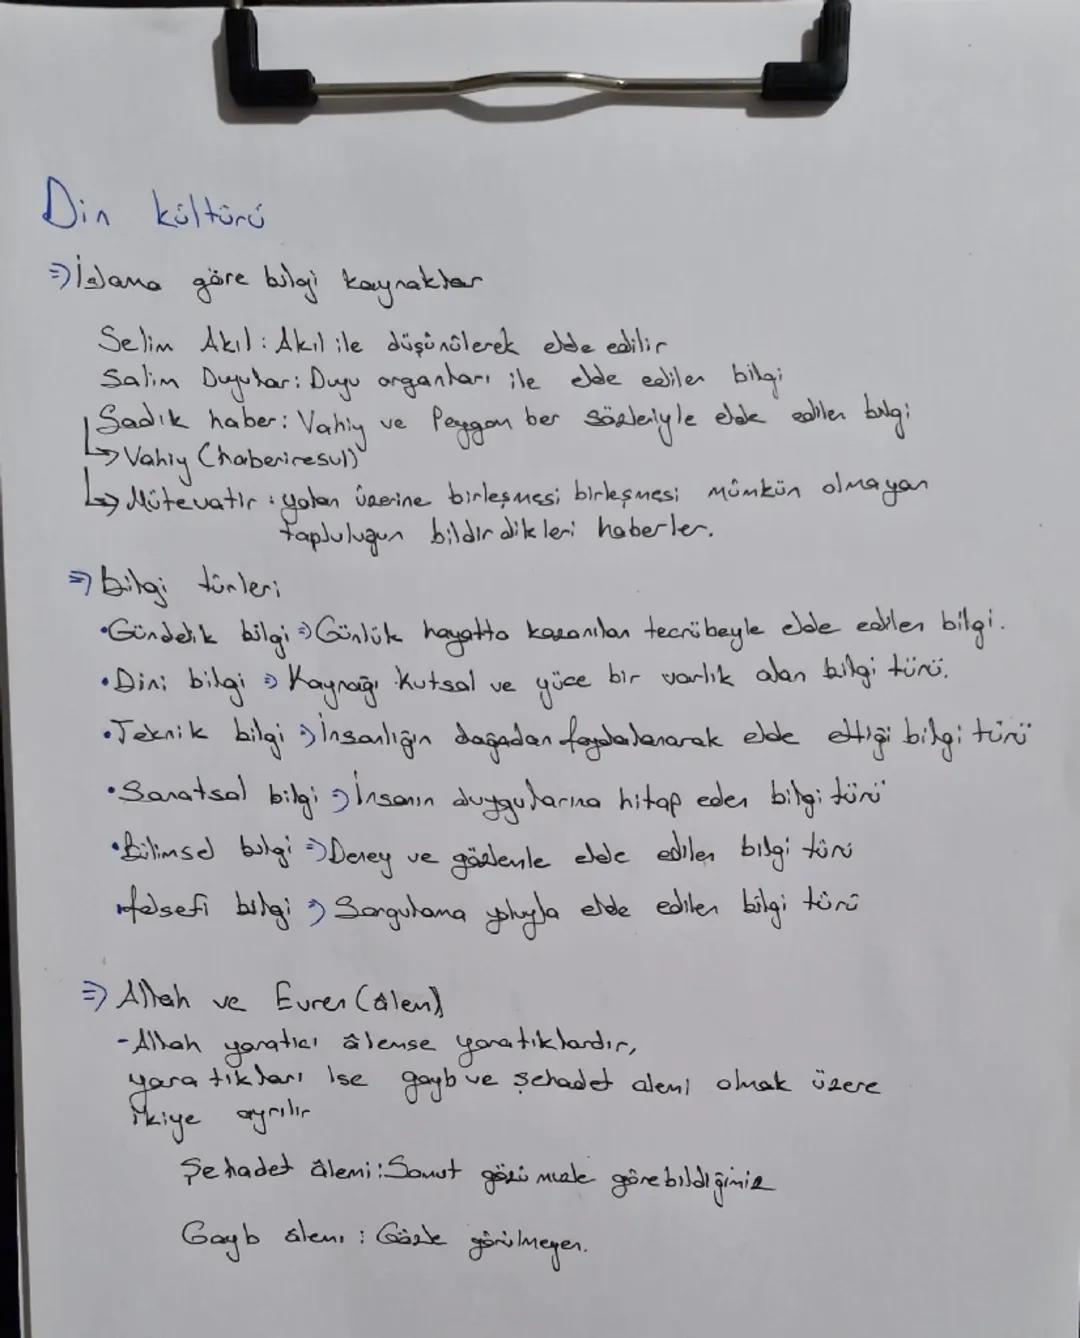 Din kültürü
⇒ İslama göre bilgi kaynakları
Selim Akıl : Akıl ile düşünülerek elde edilir
Salim Duyular : Duyu organları ile elde edilen bilgi
Sadık haber : Vahiy ve Peygamber sözleriyle elde edilen bilgi
↳ Vahiy (haberiresul)
↳ Mütevatir : yalan üzerine birleşmesi birleşmesi mümkün olmayan
topluluğun bildirdikleri haberler.
⇒ Bilgi türleri
•Gündelik bilgi ⇒ Günlük hayatta kazanılan tecrübeyle elde edilen bilgi.
•Dini bilgi ⇒ Kaynağı kutsal ve yüce bir varlık olan bilgi türü.
•Teknik bilgi ⇒ İnsanlığın doğadan faydalanarak elde ettiği bilgi türü
•Sanatsal bilgi ⇒ İnsanın duygularına hitap eden bilgi türü
•Bilimsel bilgi ⇒ Deney ve gözlemle elde edilen bilgi türü
•felsefi bilgi ⇒ Sorgulama yoluyla elde edilen bilgi türü
⇒ Allah ve Evren (âlem)
-Allah yaratıcı âlemse yaratıklardır,
yaratıkları ise gayb ve şehadet alemi olmak üzere
ikiye ayrılır
Şehadet âlemi : Somut gözümüzle görebildiğimiz
Gayb âlemi : Gözle görülmeyen.